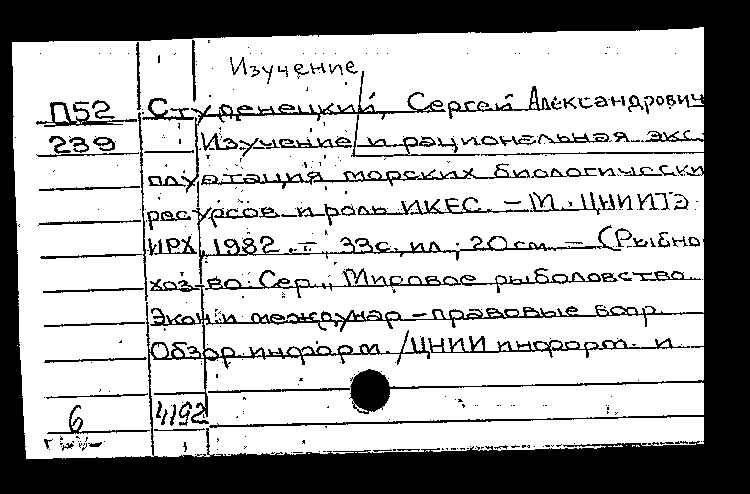 Изучение
П52 Студенецкий, Сергей Александрович
239 Изучение и рациональная экс-
плуатация морских биологически
ресурсов и роль ИКЕС. – М.: ЦНИИТЭ
ИРХ, 1982. – 33с, ил.; 20см. – (Рыбно
хоз-во. Сер., Мировое рыболовство.
Экон. и междунар-правовые вопр.
Обзор. информ. / ЦНИИ информ. и
6 4192